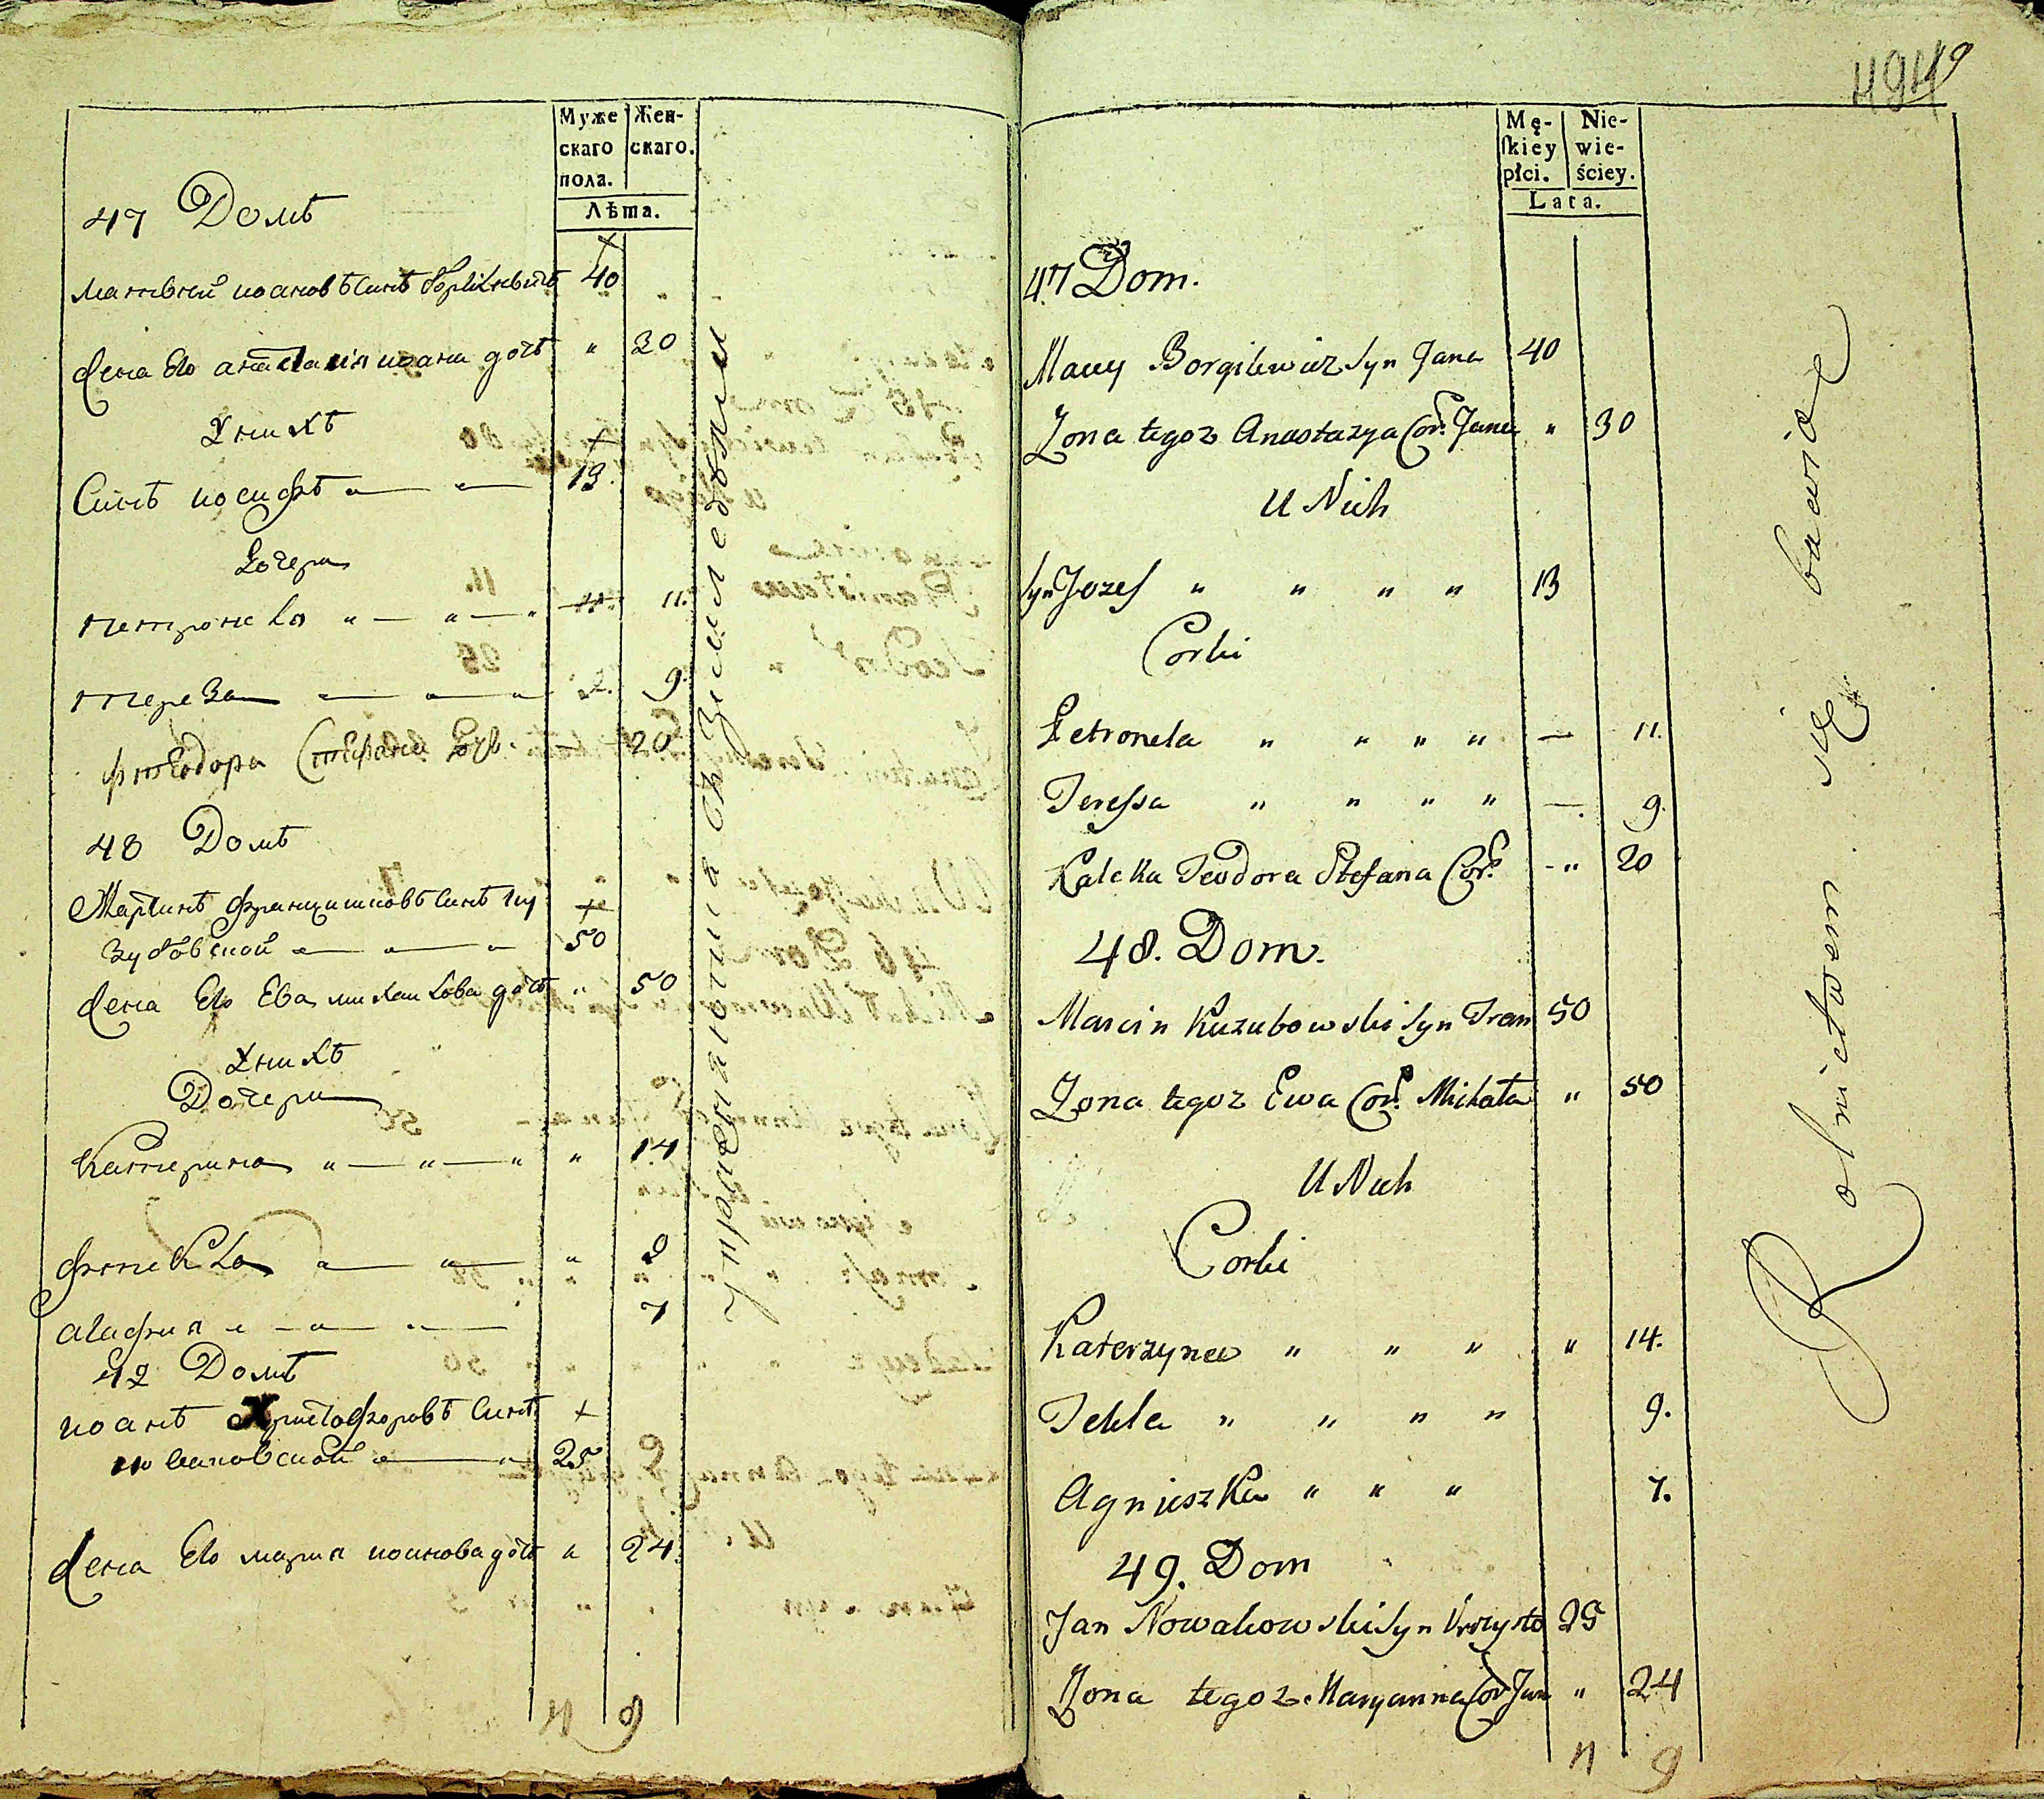 Муже
скаго
пола.
Жен-
скаго.
Лѣта.
47 Домъ
Матвей иоановъ Синъ Боргилевичъ 40
Жена Его анастасия иоана дочъ " 30
У них
Синъ иосифъ 13
Дочери
петронела " " " 11.
тереза 9.
фтеодора Стефана Дочъ. 20
48 Домъ
Мартинъ Францишковъ Синъ Ку
зубовской 50
Жена Его Ева михайлова дочъ " 50
У них
Дочери
Катерина " " " " 14
фтекла " 9
агафия 7
49 Домъ
иоанъ Христофоровъ Синъ
новаковской 25
Жена Его мария иоанова дочъ " 24.
упражнаются в земледелии
4 9
49
Mę-
skiey
płci.
Nie-
wie-
ściey.
Lata.
47 Dom.
Maciey Borgilewicz Syn Jana 40
Zona tegoz Anastazya Cor: Jana " 30
U Nich
Syn Jozef " " " " 13
Corki
Petronela " " " " — 11.
Teressa " " " " — 9.
Kaleka Teodora Stefana Cor: - " 20
48. Dom.
Marcin Kuzubowski Syn Fran 50
Zona tegoz Ewa Cor: Michała " 50
U Nich
Corki
Katerzyna " " " " 14.
Tekla " " " " 9.
Agnieszka " " " 7.
49. Dom
Jan Nowakowski Syn Krzysto 25
Zona tegoz Maryanna Cor Jana " 24
Rolnictwem się bawią
4 9